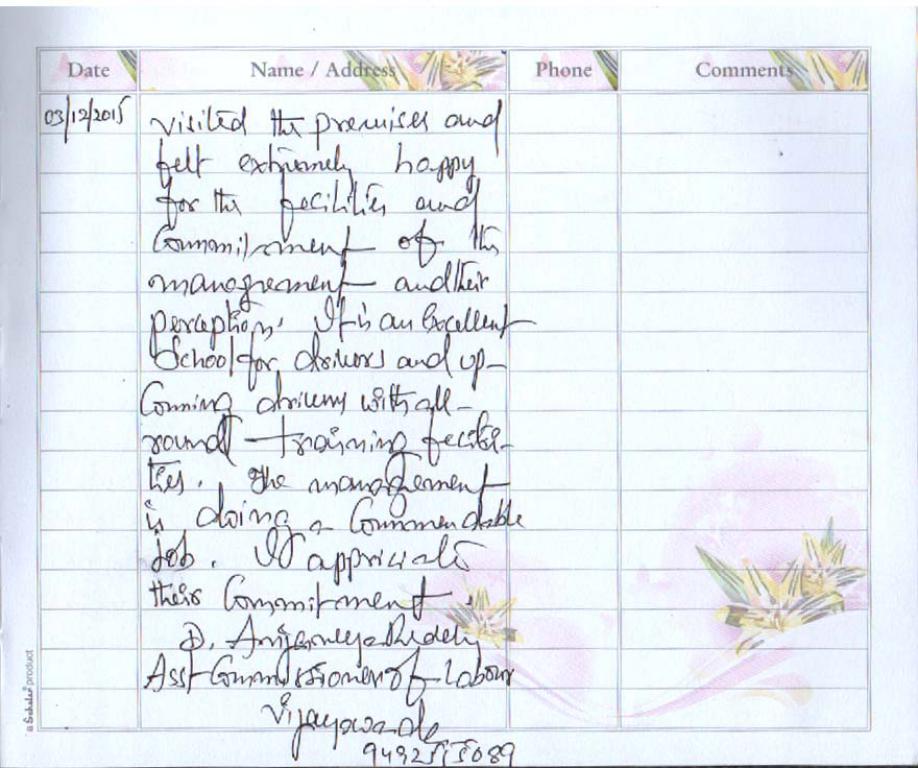 Date Name / Address Phone Comments
03/12/2015 visited the premises and
felt extremely happy
for the fecilities and
Commitment of the
management and their
perception. It is an Excellent
School for drivers and up-
Comming drivers with all-
round training fecili-
ties. The management
is doing a Commendable
job. I appriciate
their Commitment.
D. Anjaneya Reddy
Asst Commissioner of Labour
Vijayawada
9492555089
a Scholar product